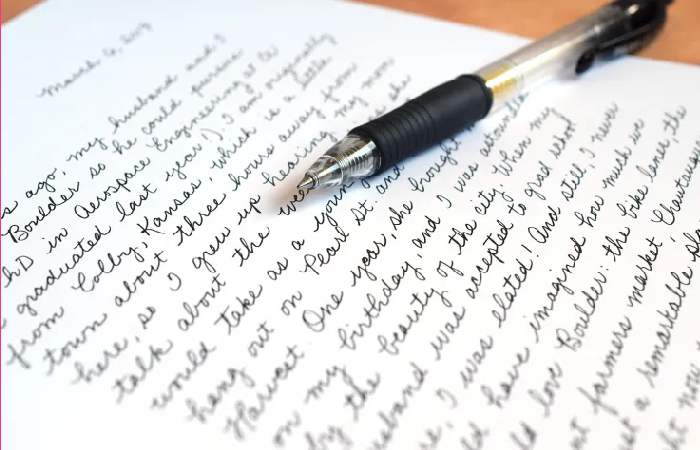 March 6, 2017
s ago, my husband and I
Boulder so he could pursue
hD in Aerospace Engineering at CU
graduated last year!). I am originally
from Colby, Kansas, which is a little
town about three hours away from
here, so I grew up hearing my mom
talk about the she
would take as a youn
hang out on Pearl St. and
Harvest. One year, she brought
on my birthday, and I was astounded
by the beauty of the city. When my
husband was accepted to grad school
re, I was elated! And still, I never
ld have imagined how much we
ld love Boulder: the bike lanes, the
nt farmers market
st a remarkable